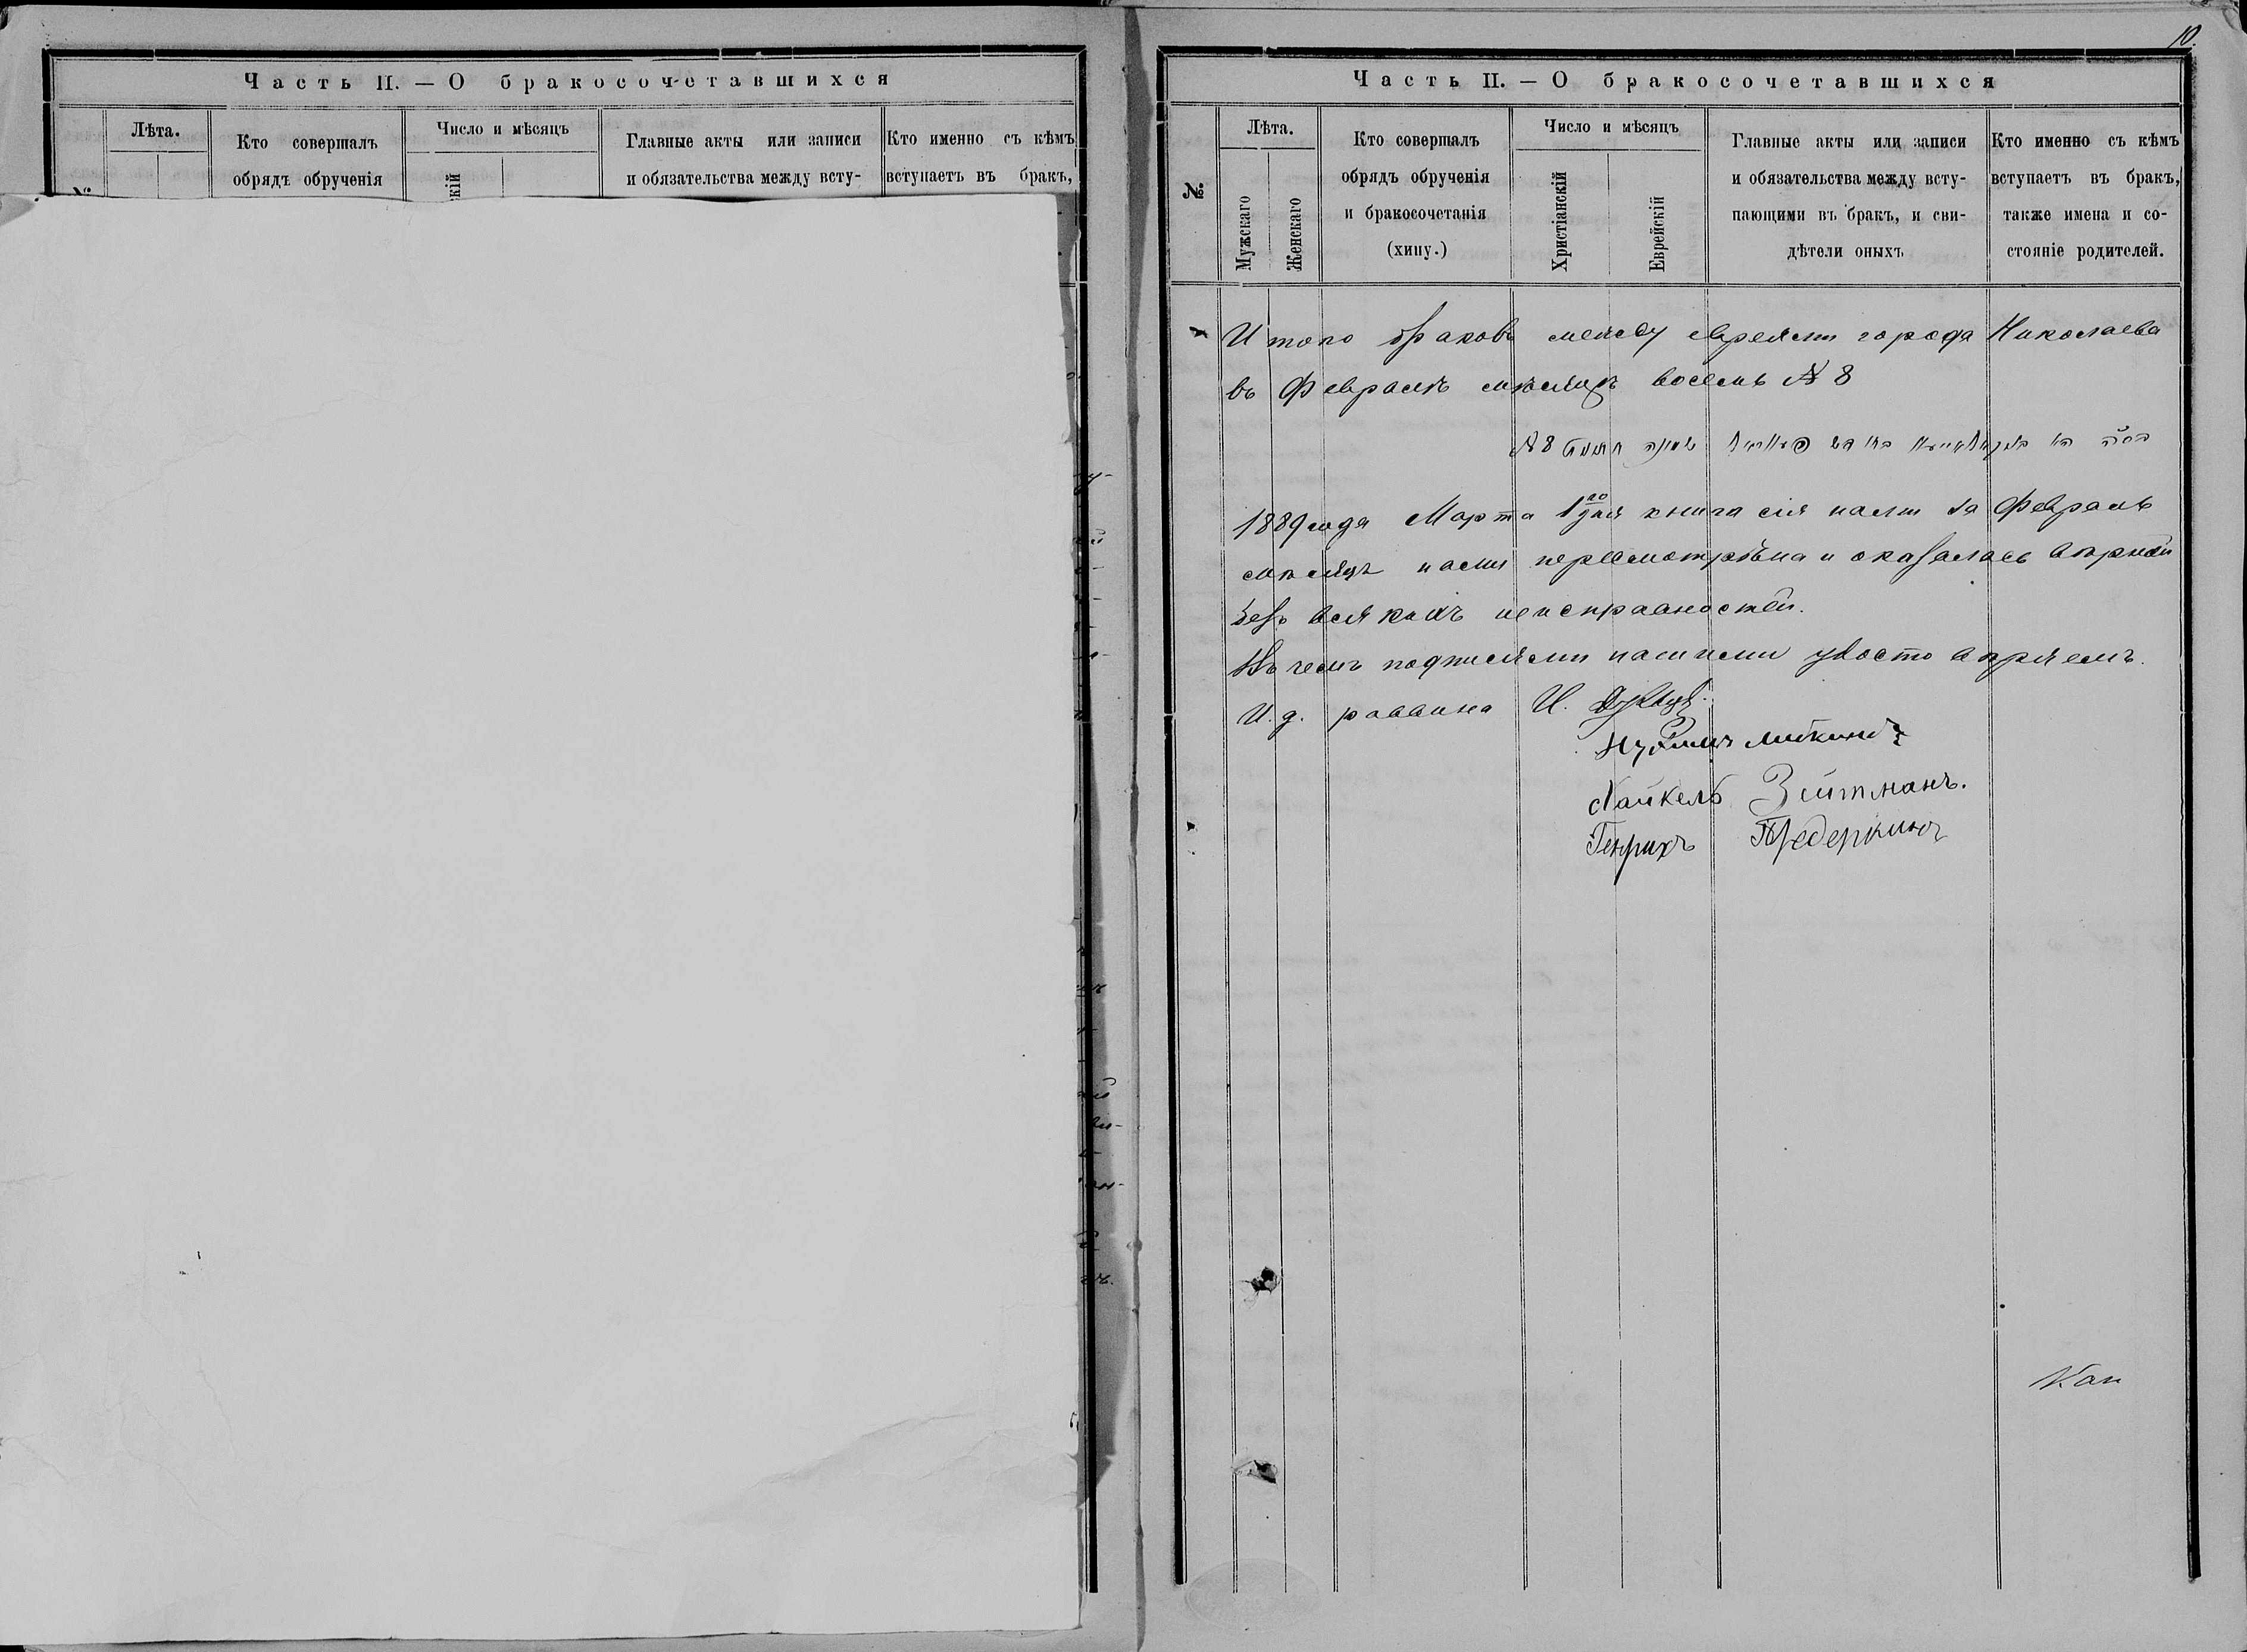 Часть II. — О бракосочетавшихся
Лѣта.
Кто совершалъ
обрядъ обрученія
Число и мѣсяцъ
Главные акты или записи
и обязательства между всту-
Кто именно съ кѣмъ
вступаетъ въ бракъ,
10.
Часть II. — О бракосочетавшихся
№
Лѣта.
Мужскаго
Женскаго
Кто совершалъ
обрядъ обрученія
и бракосочетанія
(хипу.)
Число и мѣсяцъ
Христіанскій
Еврейскій
Главные акты или записи
и обязательства между всту-
пающими въ бракъ, и сви-
дѣтели оныхъ
Кто именно съ кѣмъ
вступаетъ въ бракъ,
также имена и со-
стояніе родителей.
Итого браковъ между евреями города Николаева
въ Февралѣ мѣсяцѣ восемь № 8
№ 8
1889 года Марта 1го дня книга сія нами за Февраль
мѣсяцъ нами пересмотрѣна и оказалась вѣрной
безъ всякихъ неисправностей.
Въ чемъ подписями нашими удостовѣряемъ.
И. д. раввина И.
Хайкель Зитманъ.
Генрихъ
Кан